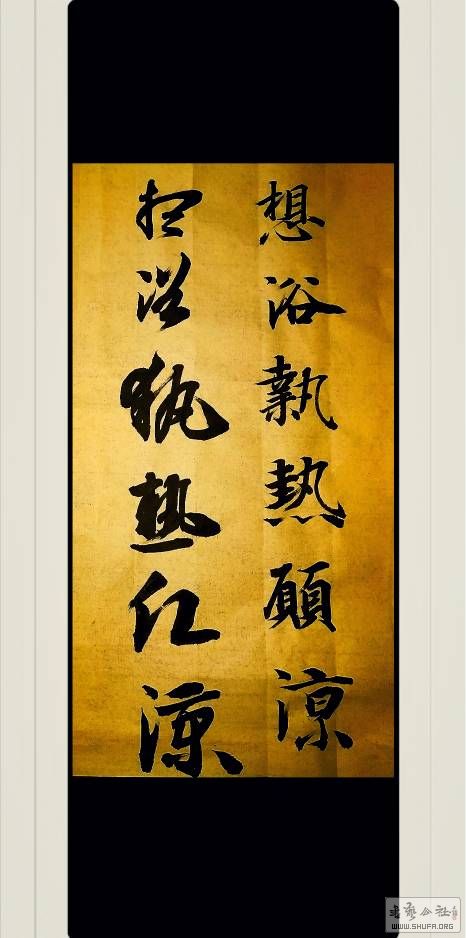 想浴執熱願涼
想浴執熱願涼
書藝公社
WWW.SHUFA.ORG